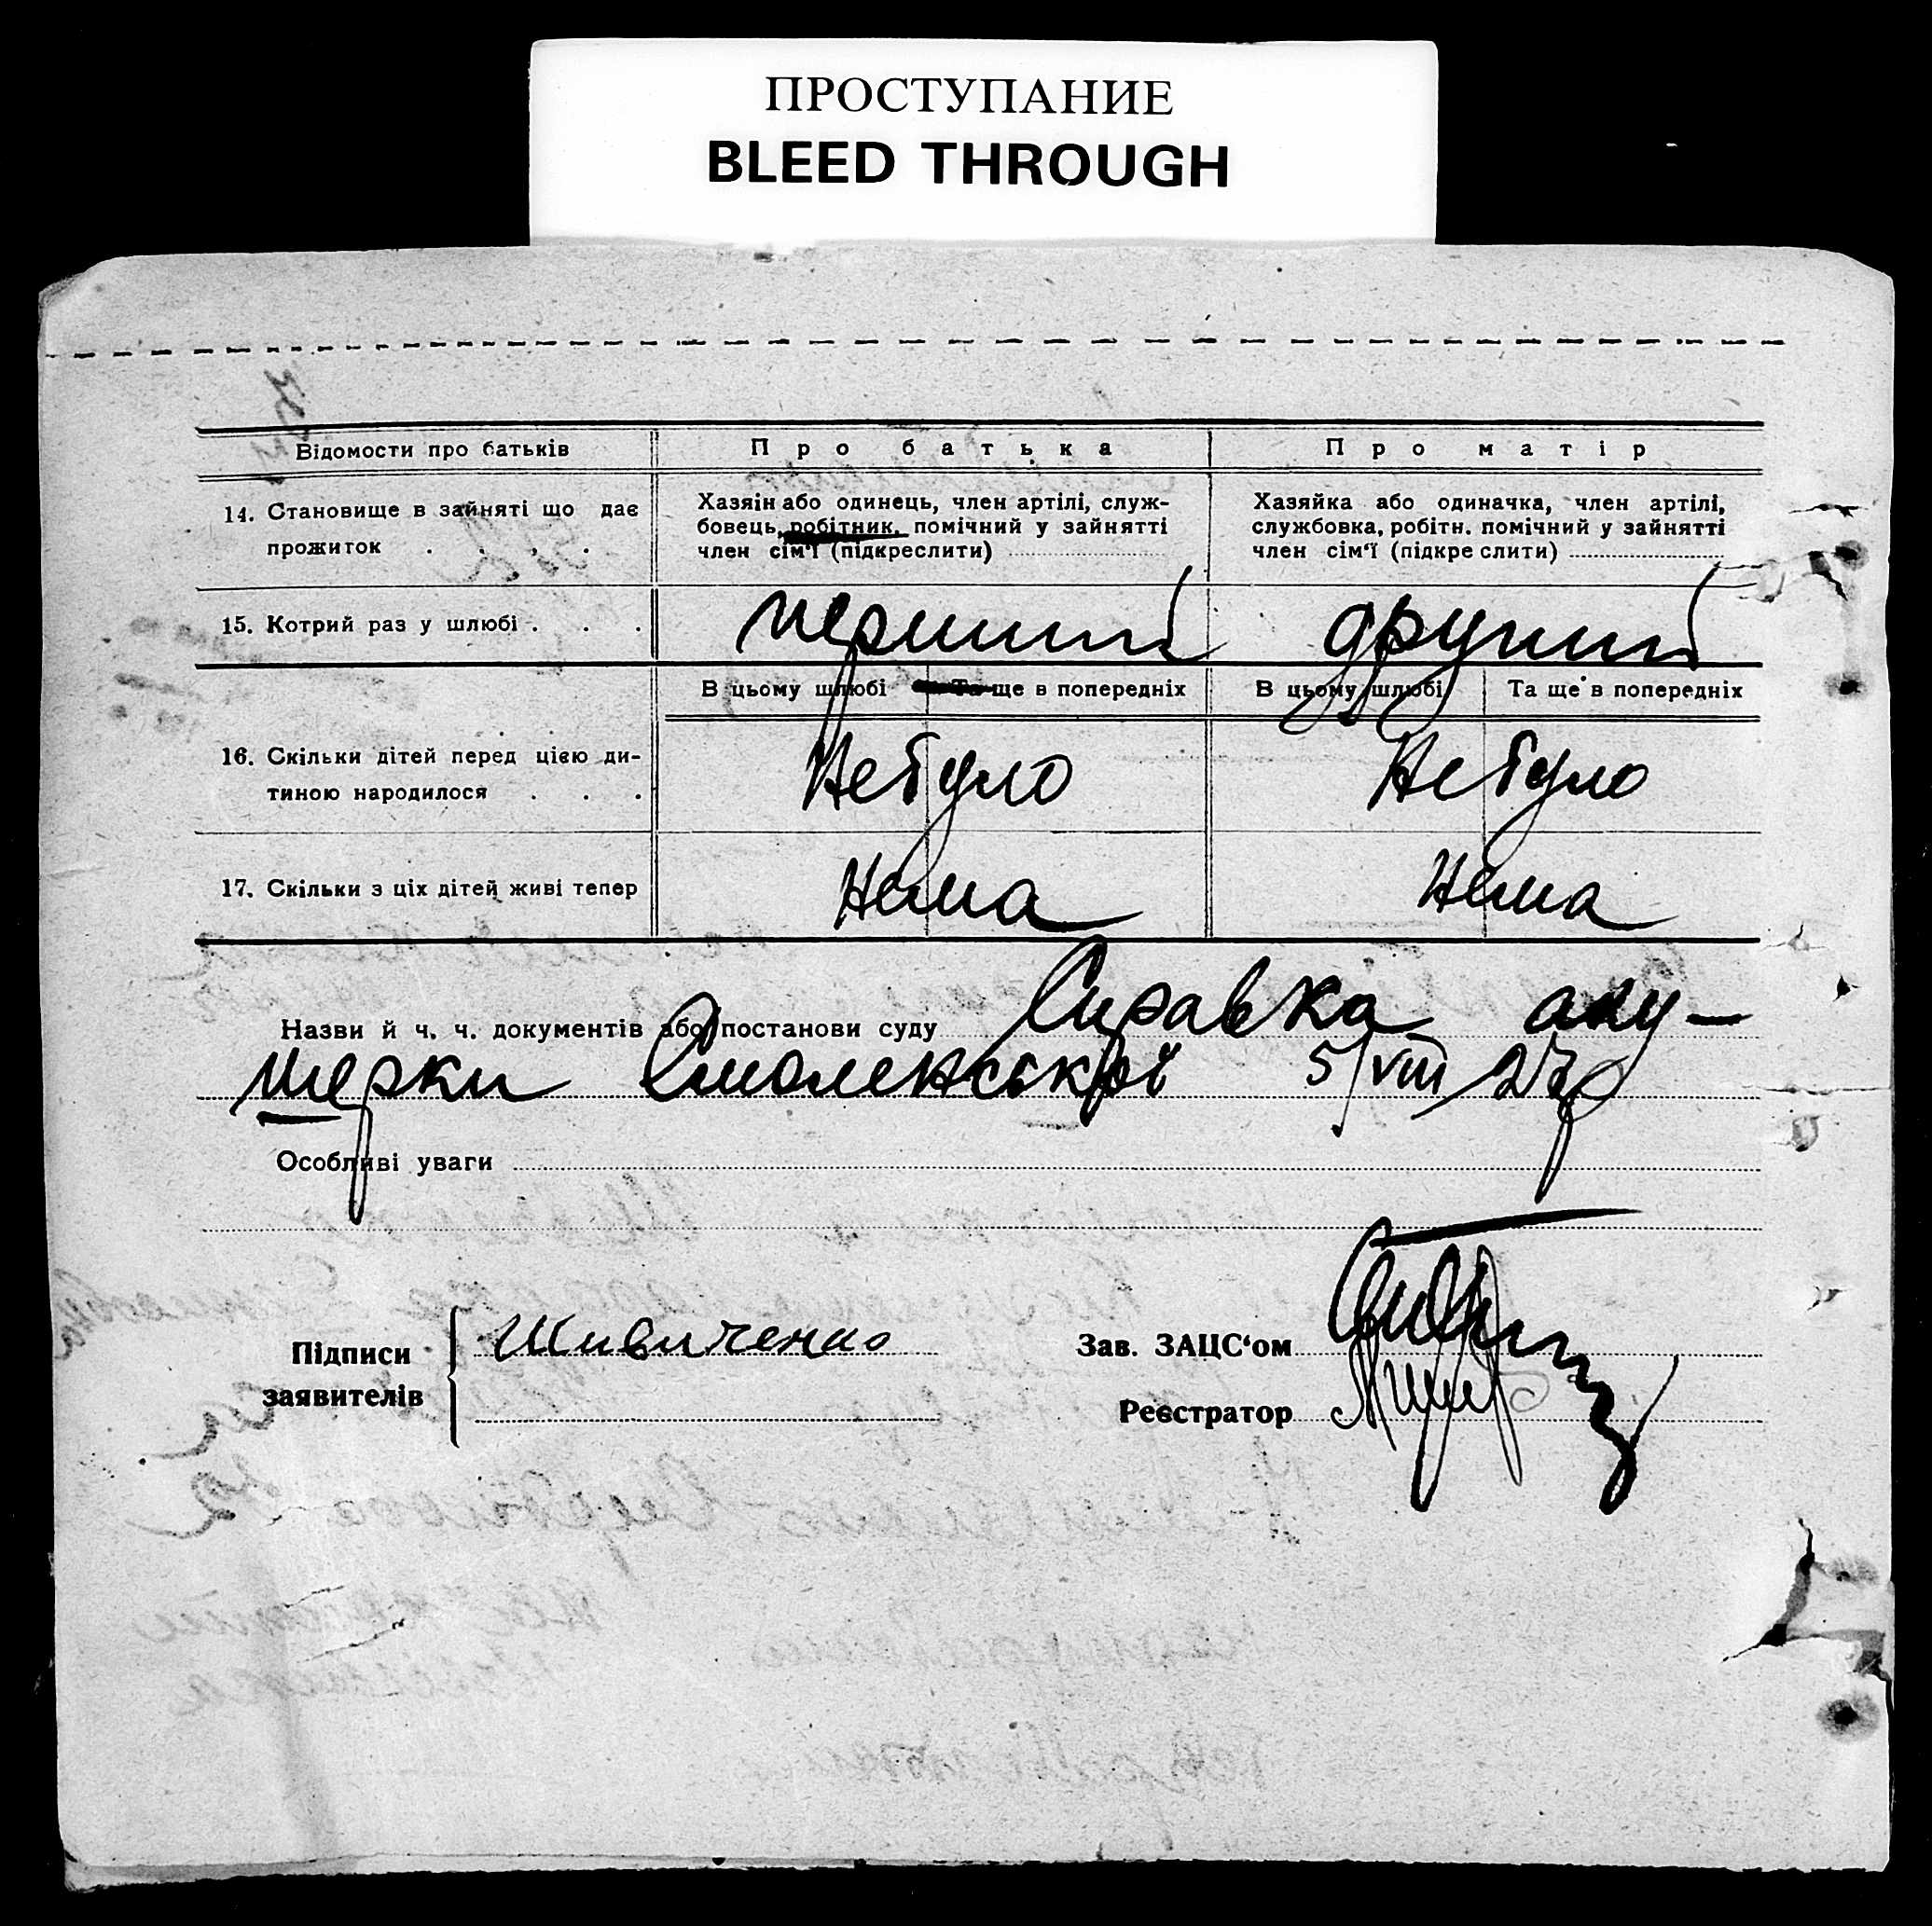 ПРОСТУПАНИЕ
BLEED THROUGH
Відомости про батьків Про батька Про матір
14. Становище в зайняті що дає прожиток . . . .
Хазяїн або одинець, член артілі, служ-
бовець, робітник, помічний у зайнятті
член сім'ї (підкреслити)
Хазяйка або одиначка, член артілі,
службовка, робітн. помічний у зайнятті
член сім'ї (підкреслити)
15. Котрий раз у шлюбі . . . перший другий
В цьому шлюбі Та ще в попередніх В цьому шлюбі Та ще в попередніх
16. Скільки дітей перед цією ди-
тиною народилося . . . Не було Не було
17. Скільки з ціх дітей живі тепер Нема Нема
Назви й ч. ч. документів або постанови суду Справка аку-
шерки Смоленської 5/VIII 27р
Особливі уваги
Підписи
заявителів
Зав. ЗАЦС'ом
Реєстратор